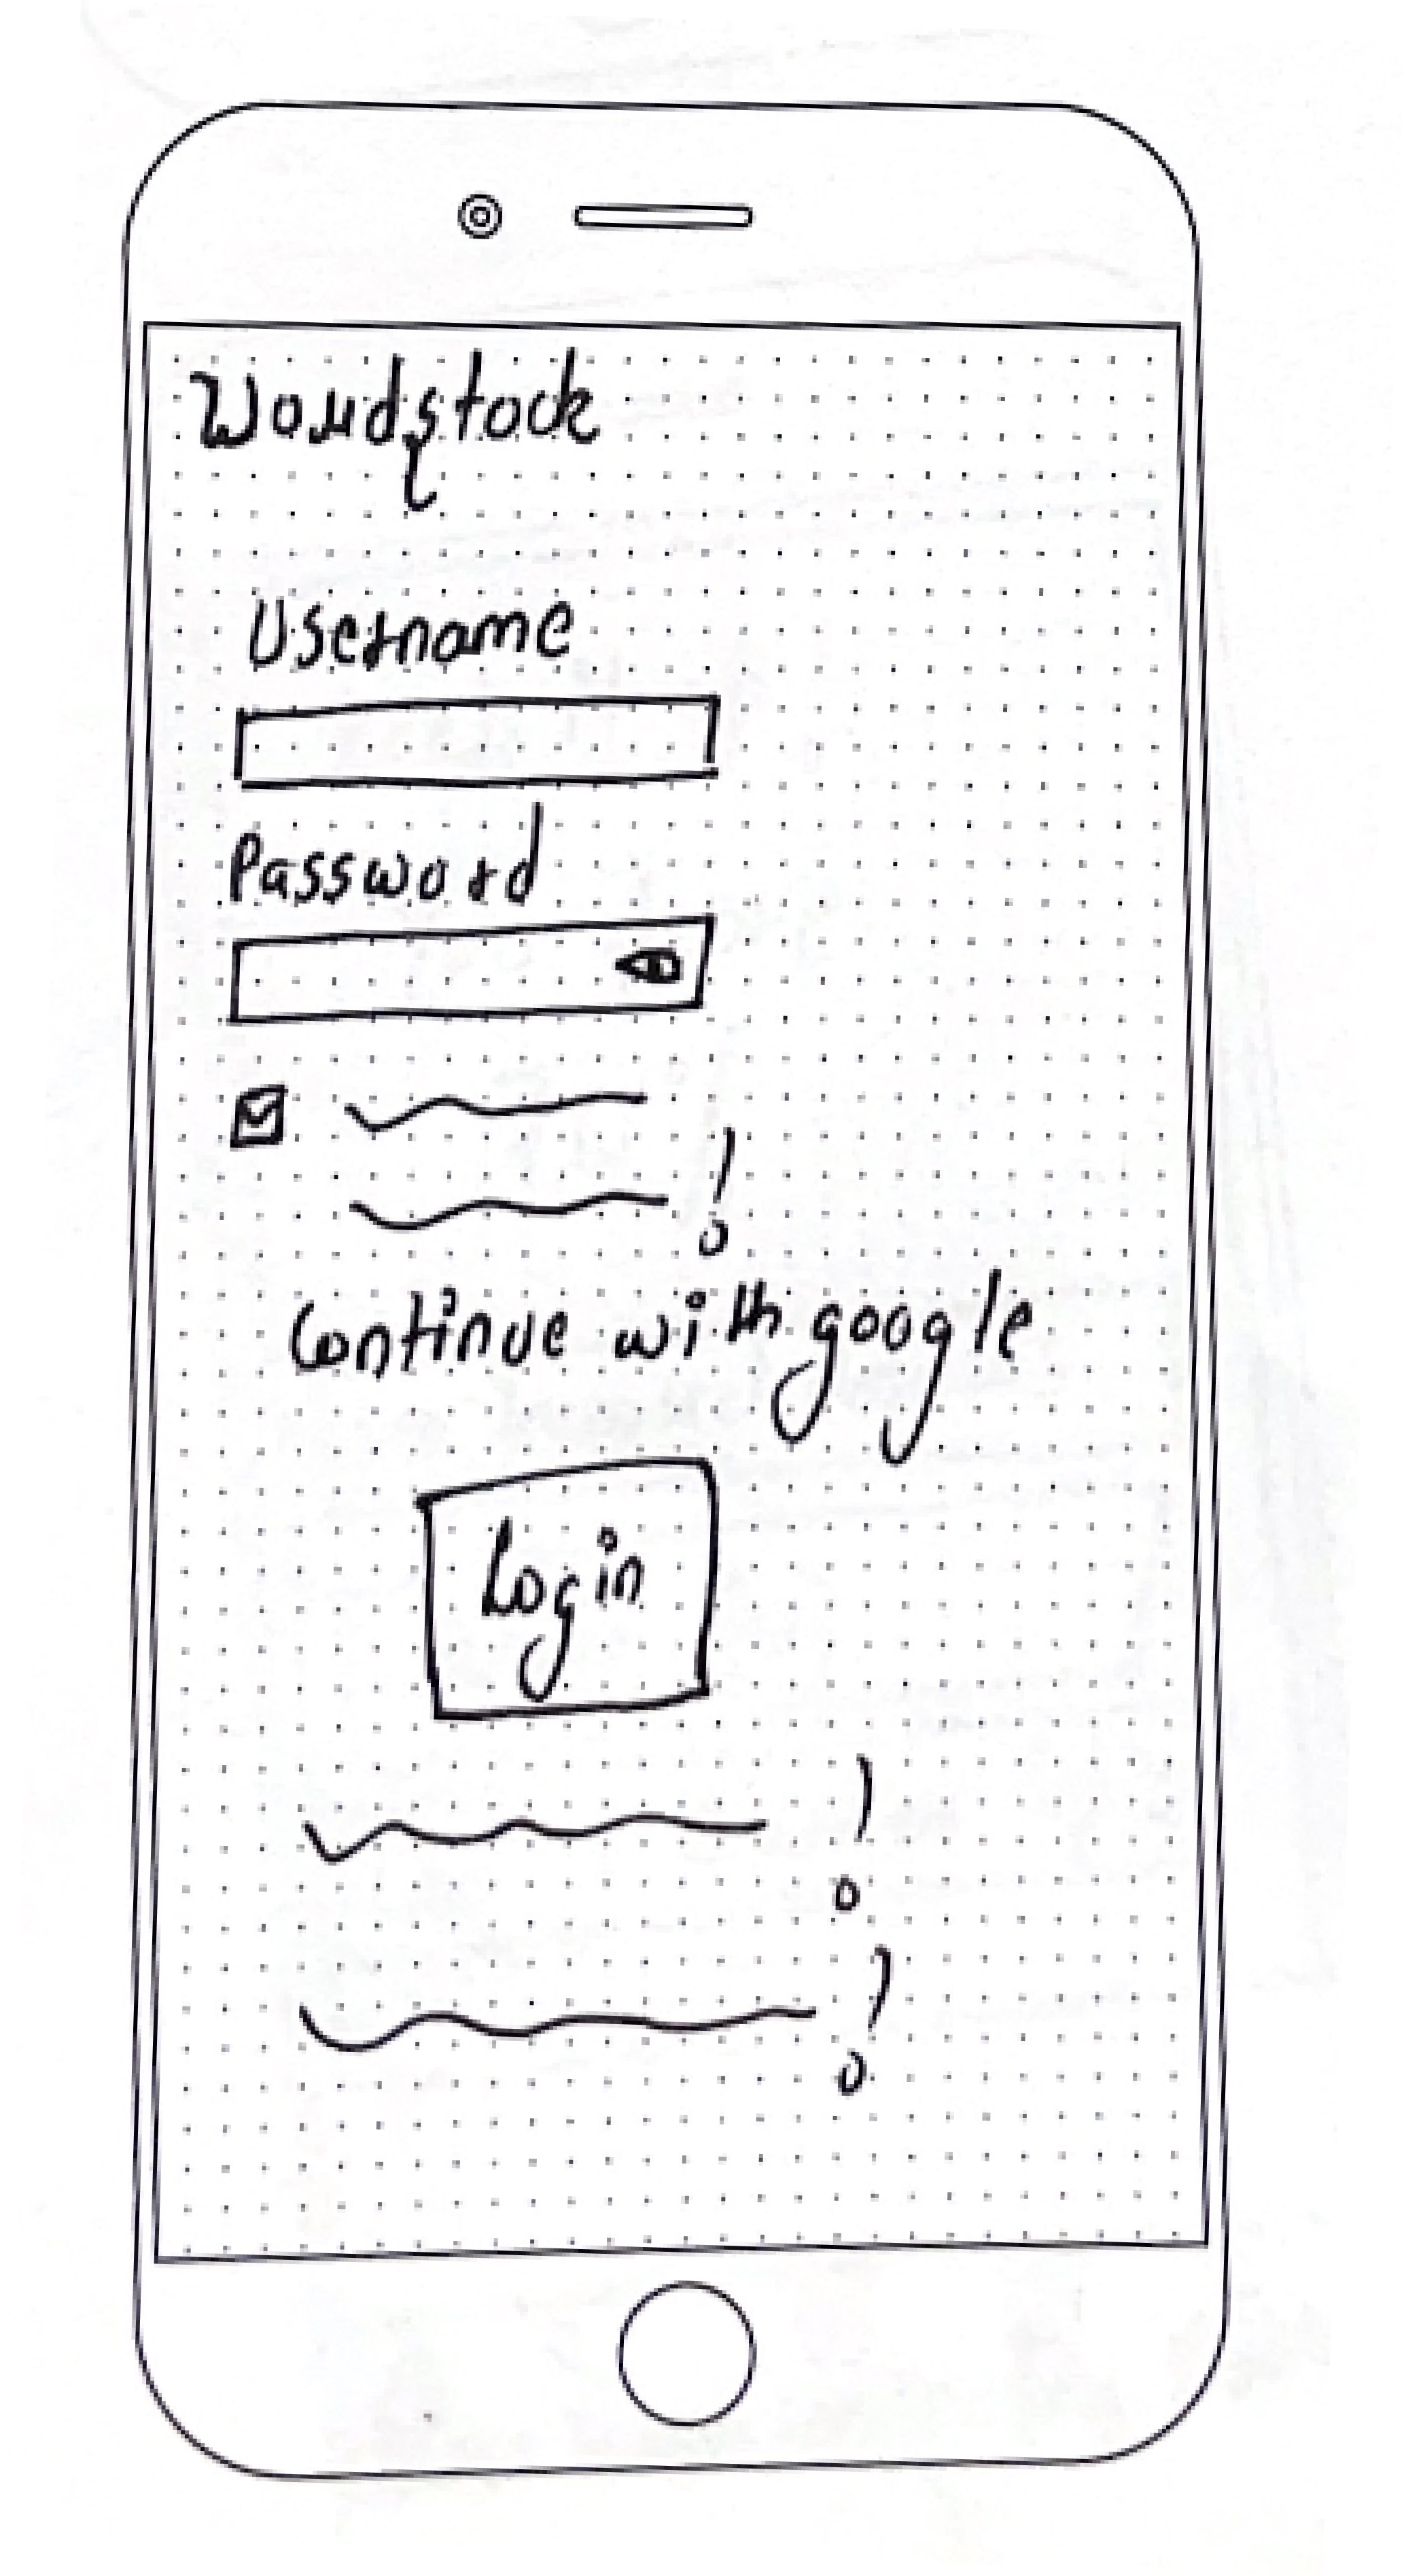 Woodstock
Username
Password
!
Continue with google
Login
!
!